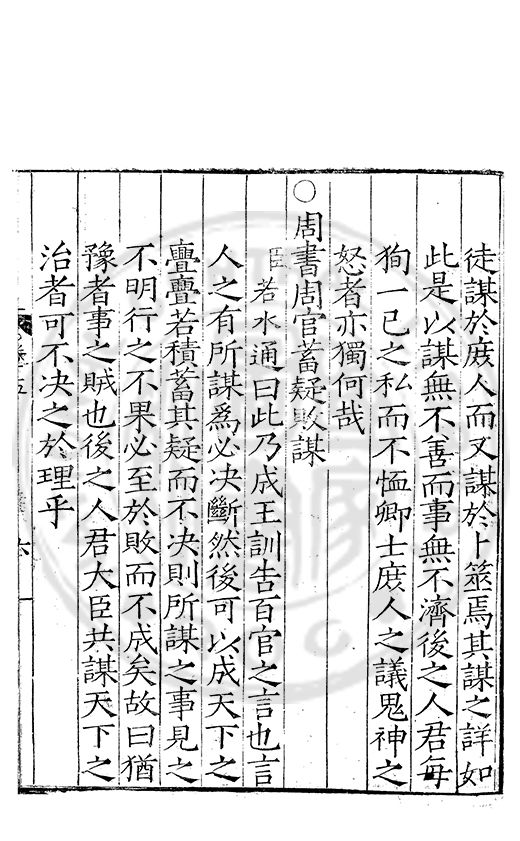 徒謀於庻人而又謀於卜筮焉其謀之詳如
此是以謀無不善而事無不濟後之人君每
狥一己之私而不恤卿士庻人之議鬼神之
怒者亦獨何哉
○周書周官蓄疑敗謀
臣若水通曰此乃成王訓告百官之言也言
人之有所謀爲必决斷然後可以成天下之
亹亹若積蓄其疑而不决則所謀之事見之
不明行之不果必至於敗而不成矣故曰猶
豫者事之賊也後之人君大臣共謀天下之
治者可不决之於理乎
六